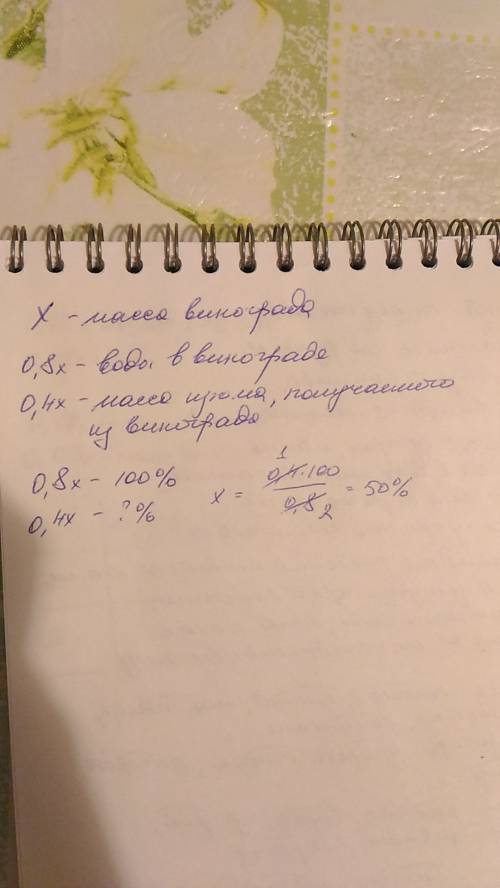 X - масса винограда
0,8x - воды в винограде
0,4x - масса изюма, получаемого
из винограда
0,8x - 100%
0,4x - ?%
x = 0,4·100 / 0,8 = 50%
1
2